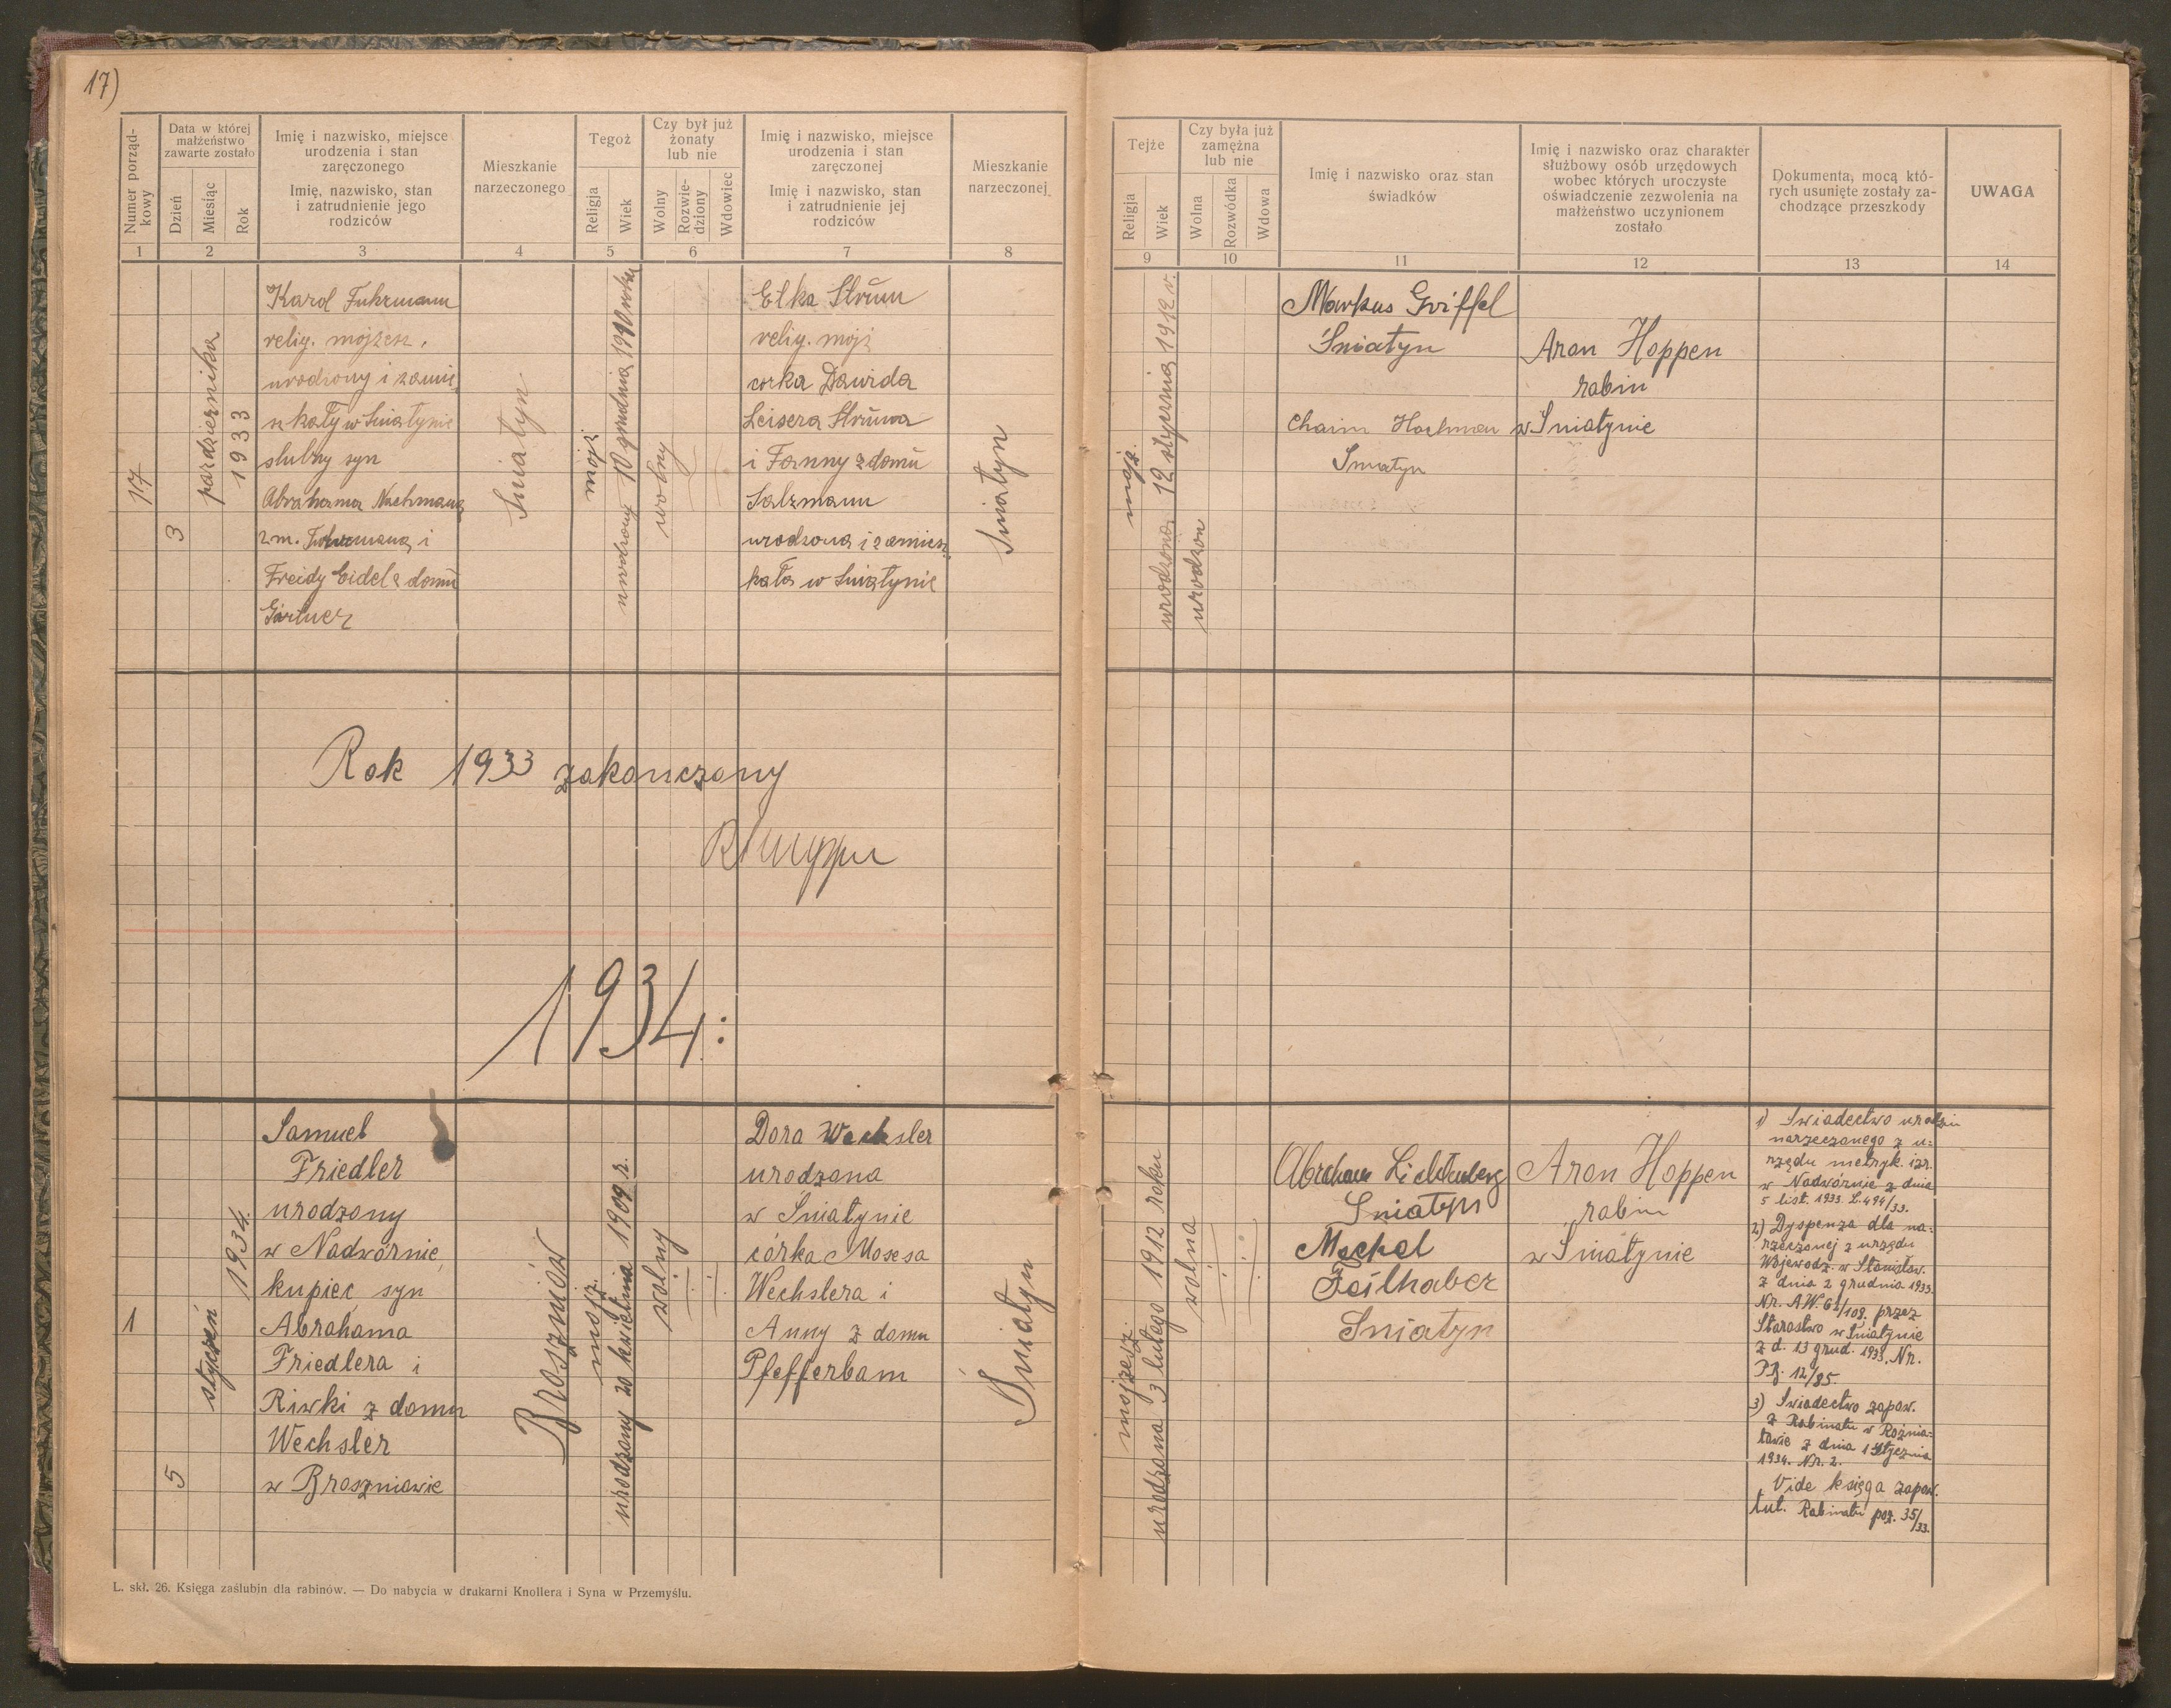 17)
Numer porząd-
kowy
Data w której
małżeństwo
zawarte zostało
Dzień
Miesiąc
Rok
Imię i nazwisko, miejsce
urodzenia i stan
zaręczonego
Imię, nazwisko, stan
i zatrudnienie jego
rodziców
Mieszkanie
narzeczonego
Tegoż
Religja
Wiek
Czy był już
żonaty
lub nie
Wolny
Rozwie-
dziony
Wdowiec
Imię i nazwisko, miejsce
urodzenia i stan
zaręczonej
Imię i nazwisko, stan
i zatrudnienie jej
rodziców
Mieszkanie
narzeczonej
1
2
3
4
5
6
7
8
Tejże
Religja
Wiek
Czy była już
zamężna
lub nie
Wolna
Rozwódka
Wdowa
Imię i nazwisko oraz stan
świadków
Imię i nazwisko oraz charakter
służbowy osób urzędowych
wobec których uroczyste
oświadczenie zezwolenia na
małżeństwo uczynionem
zostało
Dokumenta, mocą któ-
rych usunięte zostały za-
chodzące przeszkody
UWAGA
9
10
11
12
13
14
17
3
pazdziernika
1933
Karol Fuhrmann
relig. mojżesz.
urodzony i zamie
szkały w Sniatynie
slubny syn
Abrahama Nachmana
2m. Fuhrmana i
Freidy Eidel z domu
Gärtner
Sniatyn
mojż
urodzony 10 grudnia 1910 roku
wolny
Etka Strum
relig. mojż
corka Dawida
Leisera Struma
i Fanny z domu
Salzmann
urodzona i zamiesz
kała w Sniatynie
Sniatyn
mojż.
urodzona 12 stycznia 1912 r.
urodzon
Markus Griffel
Śniatyn
Chaim Hachman
Sniatyn
Aron Hoppen
rabin
w Sniatynie
Rok 1933 zakonczony
1934:
1
5
styczeń
1934.
Samuel
Friedler
urodzony
w Nadwórnie,
kupiec syn
Abrahama
Friedlera i
Riwki z domu
Wechsler
w Broszniowie
Broszniów
mojż.
urodzony 20 kwietnia 1909 r.
wolny
Dora Wechsler
urodzona
w Sniatynie
córka Mosesa
Wechslera i
Anny z domu
Pfefferbam
Sniatyn
mojżesz.
urodzona 3 lutego 1912 roku
wolna
Abraham Lichtenberg
Sniatyn
Mechel
Feilhaber
Sniatyn
Aron Hoppen
rabin
w Sniatynie
1) Swiadectwo urodzin
narzeczonego z u-
rzędu metryk. izr.
w Nadwórnie z dnia
5 list. 1933. L. 494/33.
2) Dyspenza dla na-
rzeczonej z urzędu
Wojewodz. w Stanisław.
z dnia 2 grudnia 1933.
Nr. A.W. 61/109. przez
Starostwo w Sniatynie
z d. 13 grud. 1933. Nr.
12/85.
3) Swiadectwo zapow.
z Rabinatu w Rożnia-
towie z dnia 1 Stycznia
1934. Nr. 2.
Vide księga zapow.
tut. Rabinatu poz. 35/33.
L. skł. 26. Księga zaślubin dla rabinów. — Do nabycia w drukarni Knollera i Syna w Przemyślu.